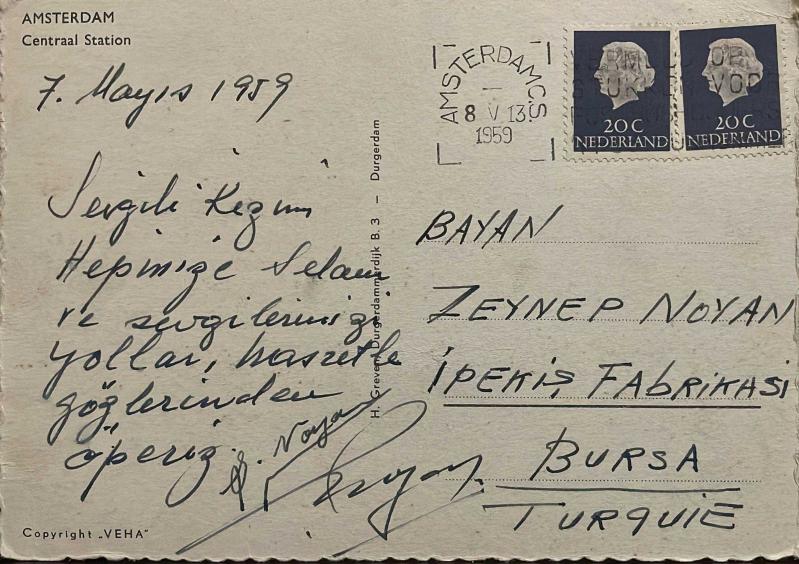 AMSTERDAM
Centraal Station
7. Mayıs 1959
Sevgili Kızım
Hepinize Selam
ve sevgilerimizi
yollar, hasretle
gözlerinden
öperiz.
Noyan
H. Greven Durgerdammerdijk B. 3 – Durgerdam
AMSTERDAM C.S.
8 V 13
1959
20 C
NEDERLAND
20 C
NEDERLAND
BAYAN
ZEYNEP NOYAN
İPEKİŞ FABRİKASI
BURSA
TURQUIE
Copyright „VEHA"